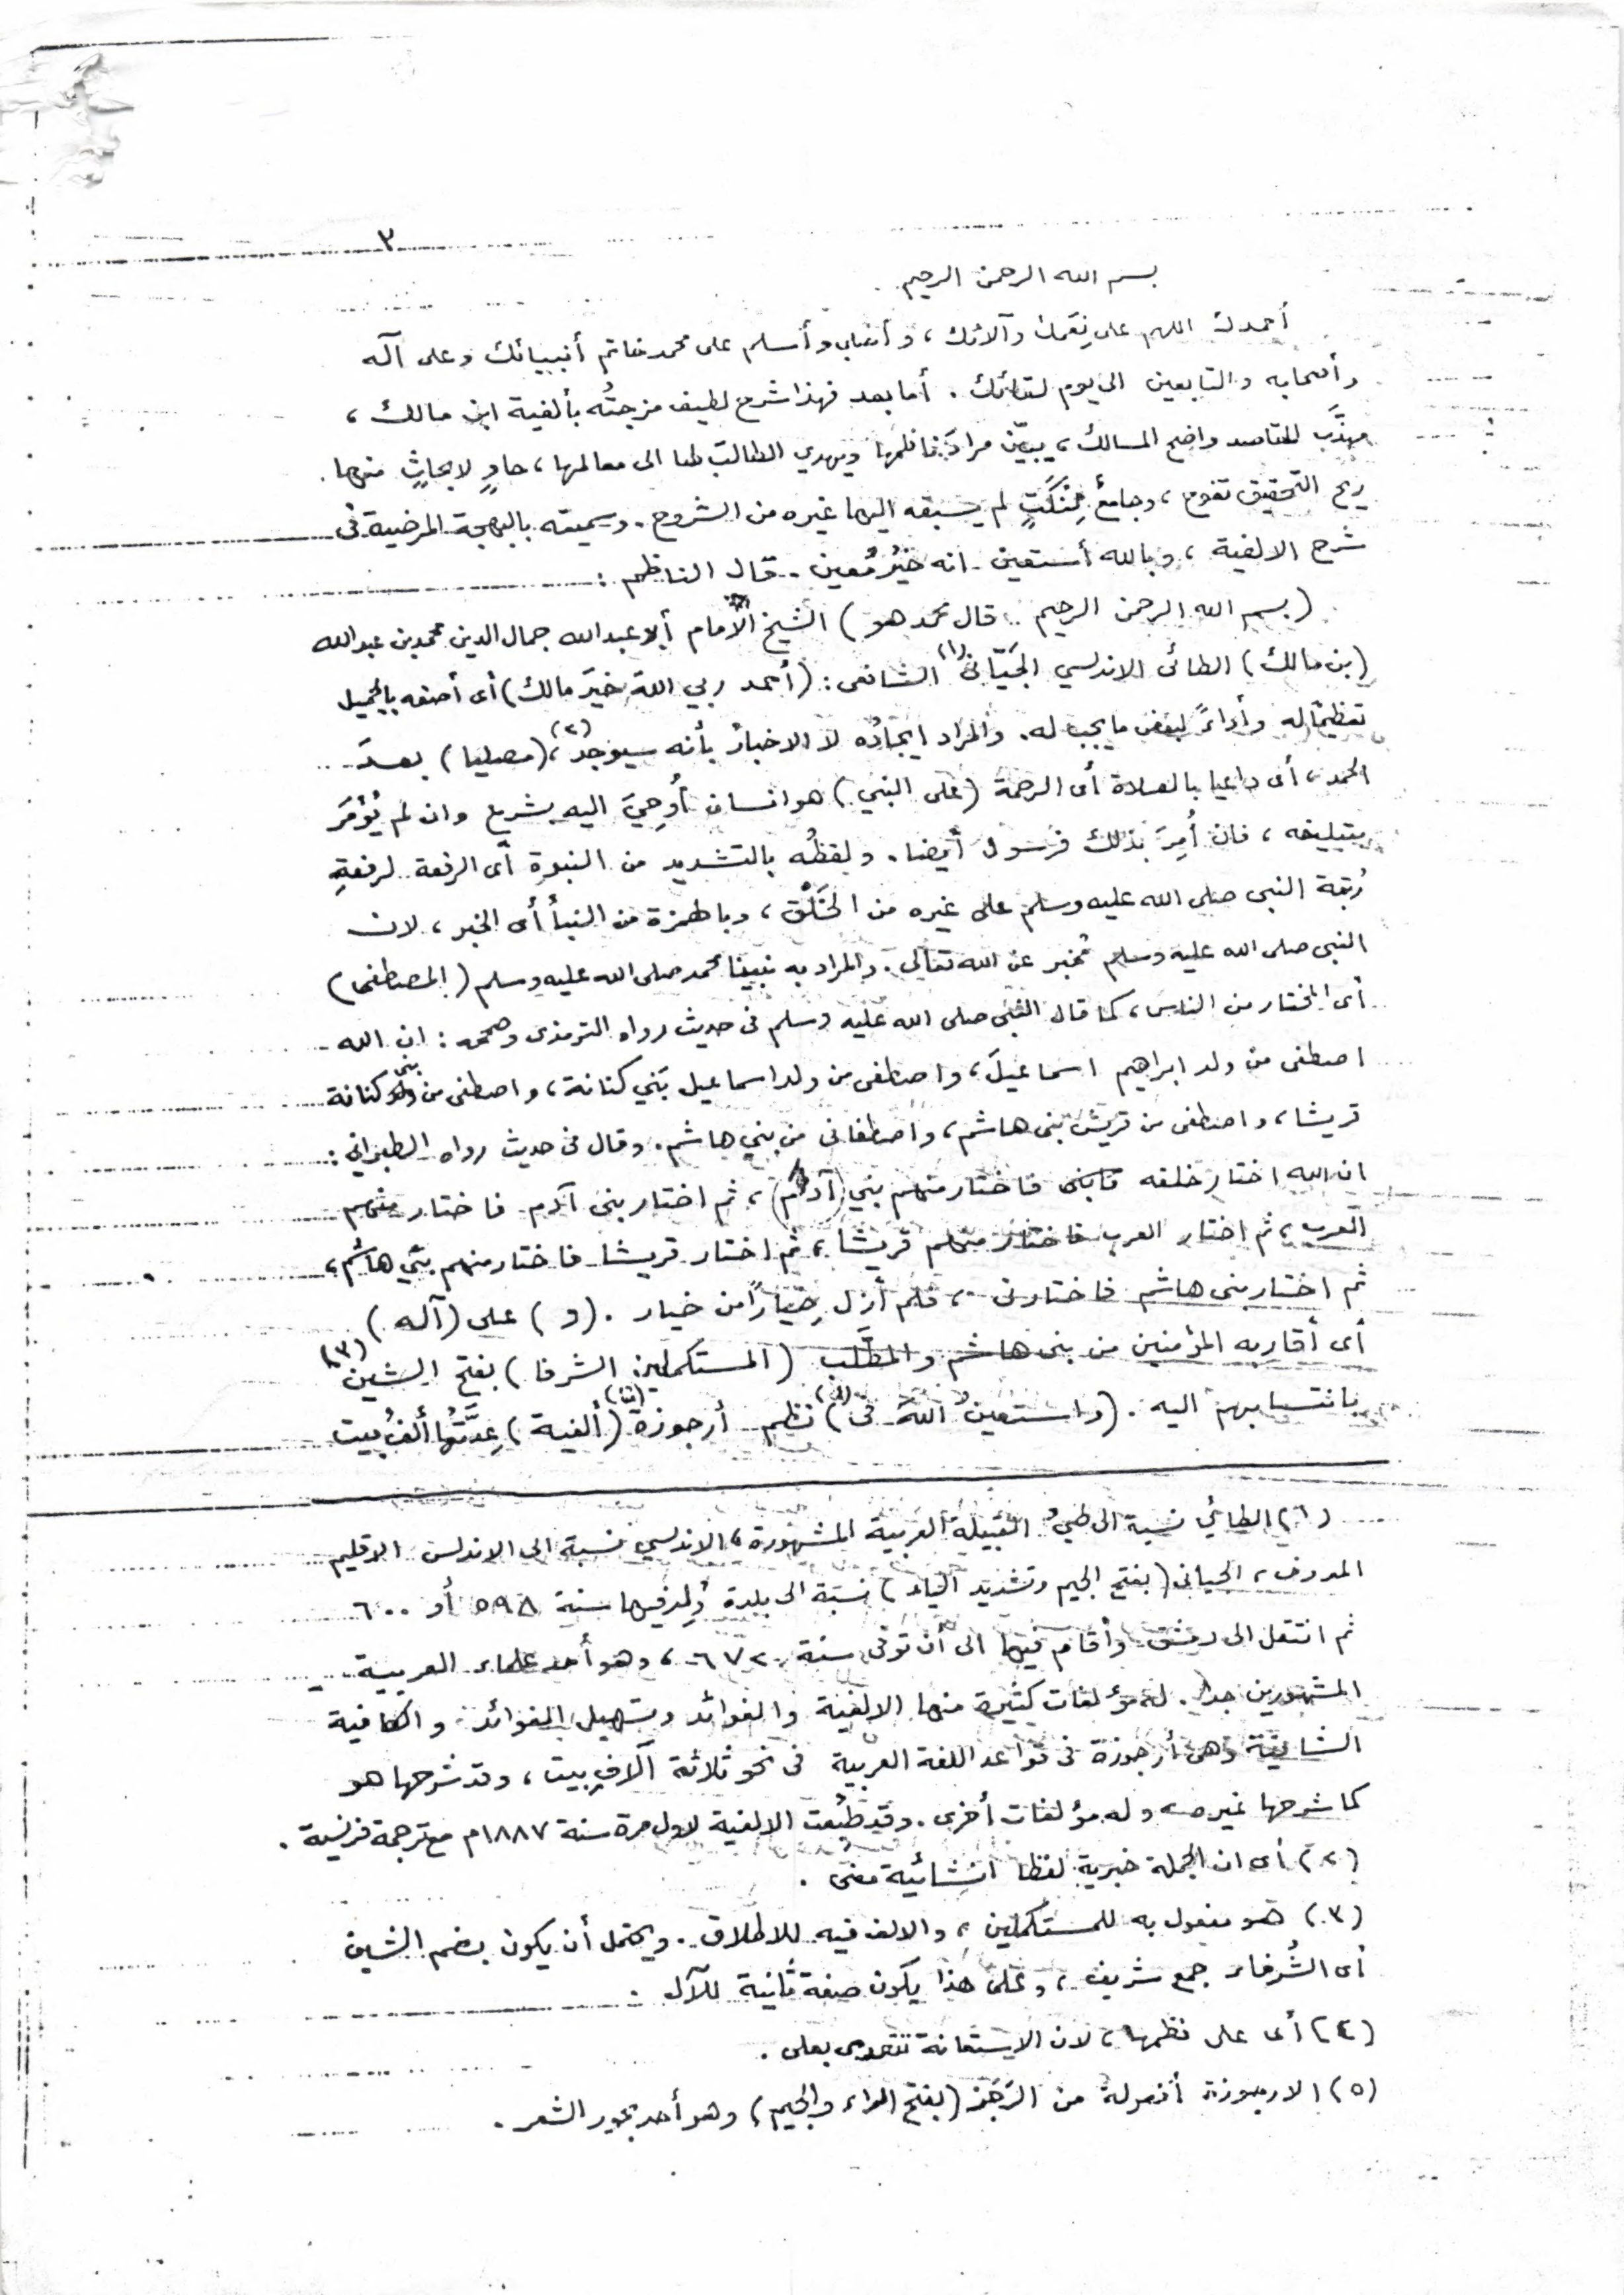 ٣
بسم الله الرحمن الرحيم .
أحمدك اللهم على نِعَمك وآلائك ، وأصلي وأسلم على محمد خاتم أنبيائك وعلى آله
وأصحابه والتابعين الى يوم لقائك . أما بعد فهذا شرح لطيف مزجتُه بألفية ابن مالك ،
مهذَّب المقاصد واضح المسالك ، يبيّن مرادَ ناظمها ويهدي الطالبَ لها الى معالمها ، حاوٍ لابحاثٍ منها .
ريح التحقيق تفوح ، وجامعٌ لِنُكَتٍ لم يسبقه اليها غيره من الشروح . وسميته بالبهجة المرضية فى
شرح الالفية ، وبالله أستعين انه خيُر مُعين . قال الناظم :
( بسم الله الرحمن الرحيم . قال محمد هو ) الشيخ الامام أبو عبدالله جمال الدين محمد بن عبدالله
(بن مالك) الطائى الاندلسي الجَيّانى (١) الشافعى : (أحمد ربي اللهَ خيَر مالك) أى أصفه بالجميل
تعظيمًا له وأداءً لبعض ما يجب له . والمراد ايجادُه لا الاخبارُ بأنه سيوجد (٢) ، (مصليا) بعدَ
الحمد ، أى داعيا بالصلاة أى الرحمة (على النبي) هو انسان أُوحِيَ اليه بشرع وان لم يُؤمَر
بتبليغه ، فان أُمِرَ بذلك فرسول أيضا . ولفظُه بالتشديد من النبوة أى الرفعة لرفعةِ
رُتبة النبى صلى الله عليه وسلم على غيره من الخَلْق ، وبالهمزة من النبأ أى الخبر ، لان
النبى صلى الله عليه وسلم مُخبر عن الله تعالى . والمراد به نبينا محمد صلى الله عليه وسلم (المصطفى)
أى المختار من الناس ، كما قال النبى صلى الله عليه وسلم فى حديث رواه الترمذى وصححه : ان الله
اصطفى من ولد ابراهيم اسماعيلَ ، واصطفى من ولد اسماعيل بَني كنانة ، واصطفى من بنى كنانة
قريشا ، واصطفى من قريش بنى هاشم ، واصطفانى من بني هاشم . وقال فى حديث رواه الطبرانى :
ان الله اختار خلقه فاختار منهم بني (آدم) ، ثم اختار بنى آدم فاختار منهم
العرب ، ثم اختار العرب فاختار منهم قريشا ، ثم اختار قريشا فاختار منهم بنى هاشم ،
ثم اختار بنى هاشم فاختارنى ، فلم أزل خِيَاراً من خيار . (و) على (آله)
أى أقاربه المؤمنين من بنى هاشم والمطَّلب (المستكملين الشرفا) بفتح الشين (٣)
بانتسابهم اليه . (واستعينُ اللهَ فى) (٤) نظم أرجوزة (٥) (ألفية) عِدَّتُها ألفُ بيت
(١) الطائي نسبة الى طيء القبيلة العربية المشهورة ، الاندلسي نسبة الى الاندلس الاقليم
المعروف ، الجيانى (بفتح الجيم وتشديد الياء) نسبة الى بلدة وُلِد فيها سنة ٥٩٨ أو ٦٠٠
ثم انتقل الى دمشق وأقام فيها الى أن توفى سنة ٦٧٢ ، وهو أحد علماء العربية
المشهورين جدا . له مؤلفات كثيرة منها الالفية والفوائد وتسهيل الفوائد والكافية
الشافية وهى أرجوزة فى قواعد اللغة العربية فى نحو ثلاثة آلافِ بيت ، وقد شرحها هو
كما شرحها غيره ، وله مؤلفات أخرى . وقد طُبعت الالفية لاول مرة سنة ١٨٨٧م مع ترجمة فرنسية .
(٢) أى ان الجملة خبرية لفظا انشائية معنى .
(٣) هو مفعول به للمستكملين ، والالف فيه للاطلاق . ويحتمل أن يكون بضم الشين
أى الشُرفاء جمع شريف ، وعلى هذا يكون صفة ثانية للآل .
(٤) أى على نظمها ، لان الاستعانة تتعدى بعلى .
(٥) الارجوزة أفعولة من الرَجَز (بفتح الراء والجيم) وهو أحد بحور الشعر .